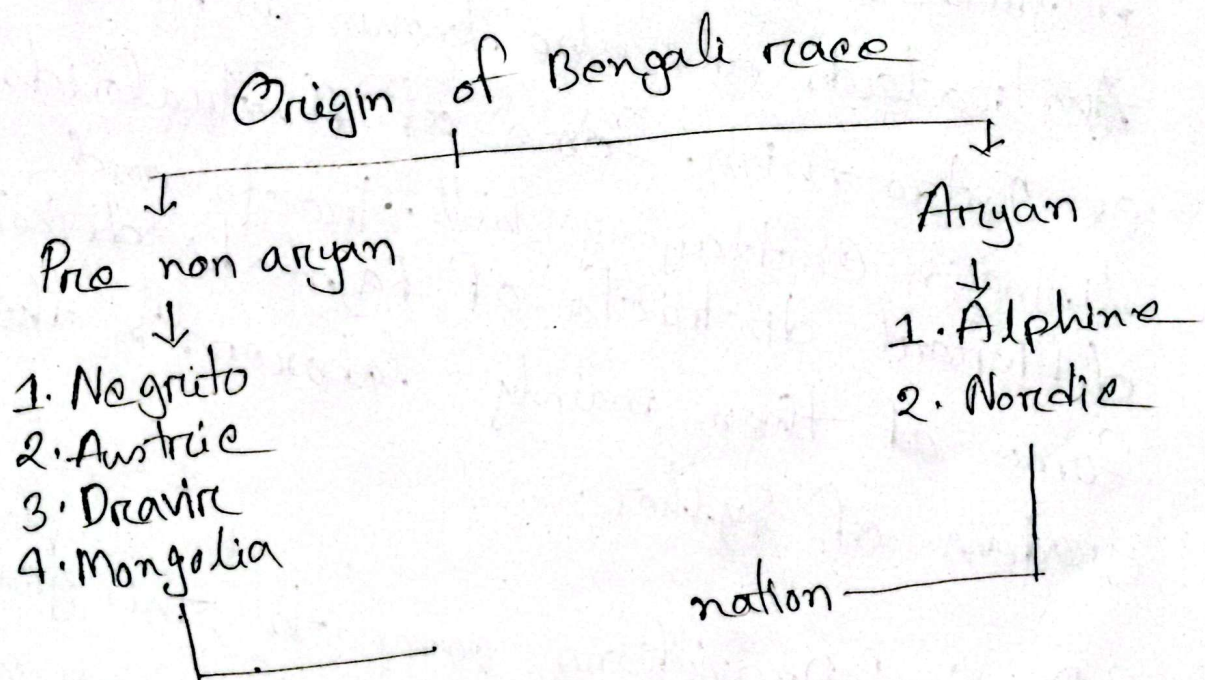 Origin of Bengali race
Pre non aryan
1. Negrito
2. Austric
3. Dravir
4. Mongolia
Aryan
1. Alphine
2. Nordic
nation